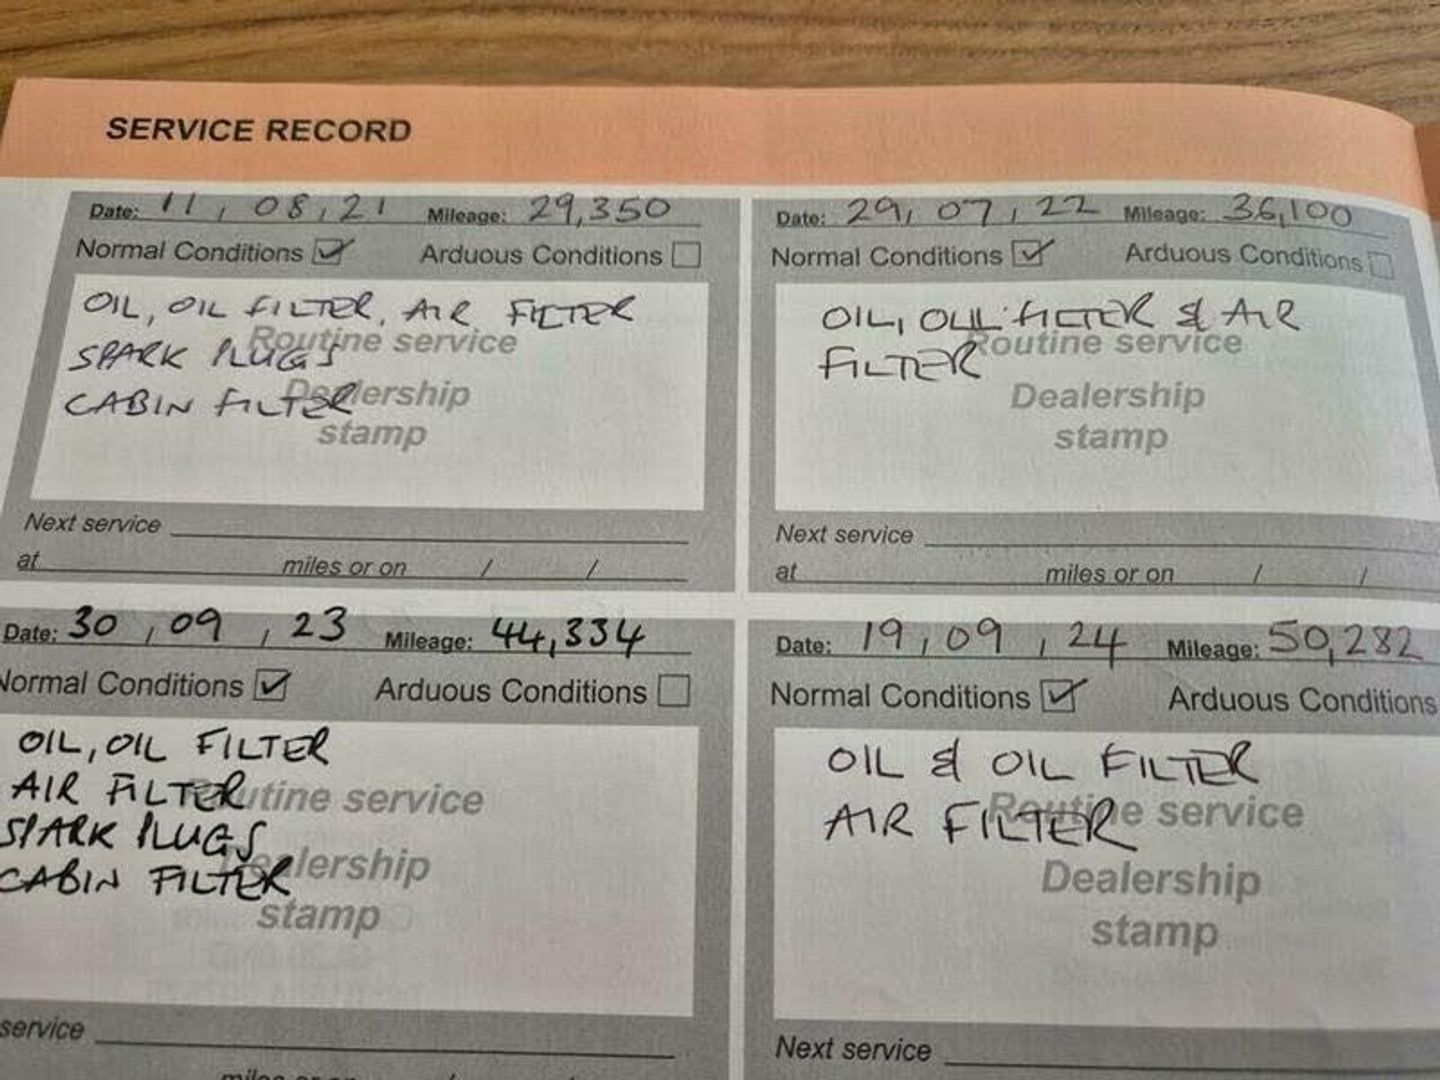 SERVICE RECORD
Date: 11 / 08 / 21 Mileage: 29,350
Normal Conditions ✓ Arduous Conditions
OIL, OIL FILTER, AIR FILTER
SPARK PLUGS
CABIN FILTER
Routine service
Dealership
stamp
Next service
at miles or on / /
Date: 29, 07, 22 Mileage: 36,100
Normal Conditions ✓ Arduous Conditions
OIL, OIL FILTER & AIR
FILTER
Routine service
Dealership
stamp
Next service
at miles or on / /
Date: 30, 09, 23 Mileage: 44,334
Normal Conditions ✓ Arduous Conditions
OIL, OIL FILTER
AIR FILTER
SPARK PLUGS
CABIN FILTER
Routine service
Dealership
stamp
service
miles or on /
Date: 19, 09, 24 Mileage: 50,282
Normal Conditions ✓ Arduous Conditions
OIL & OIL FILTER
AIR FILTER
Routine service
Dealership
stamp
Next service